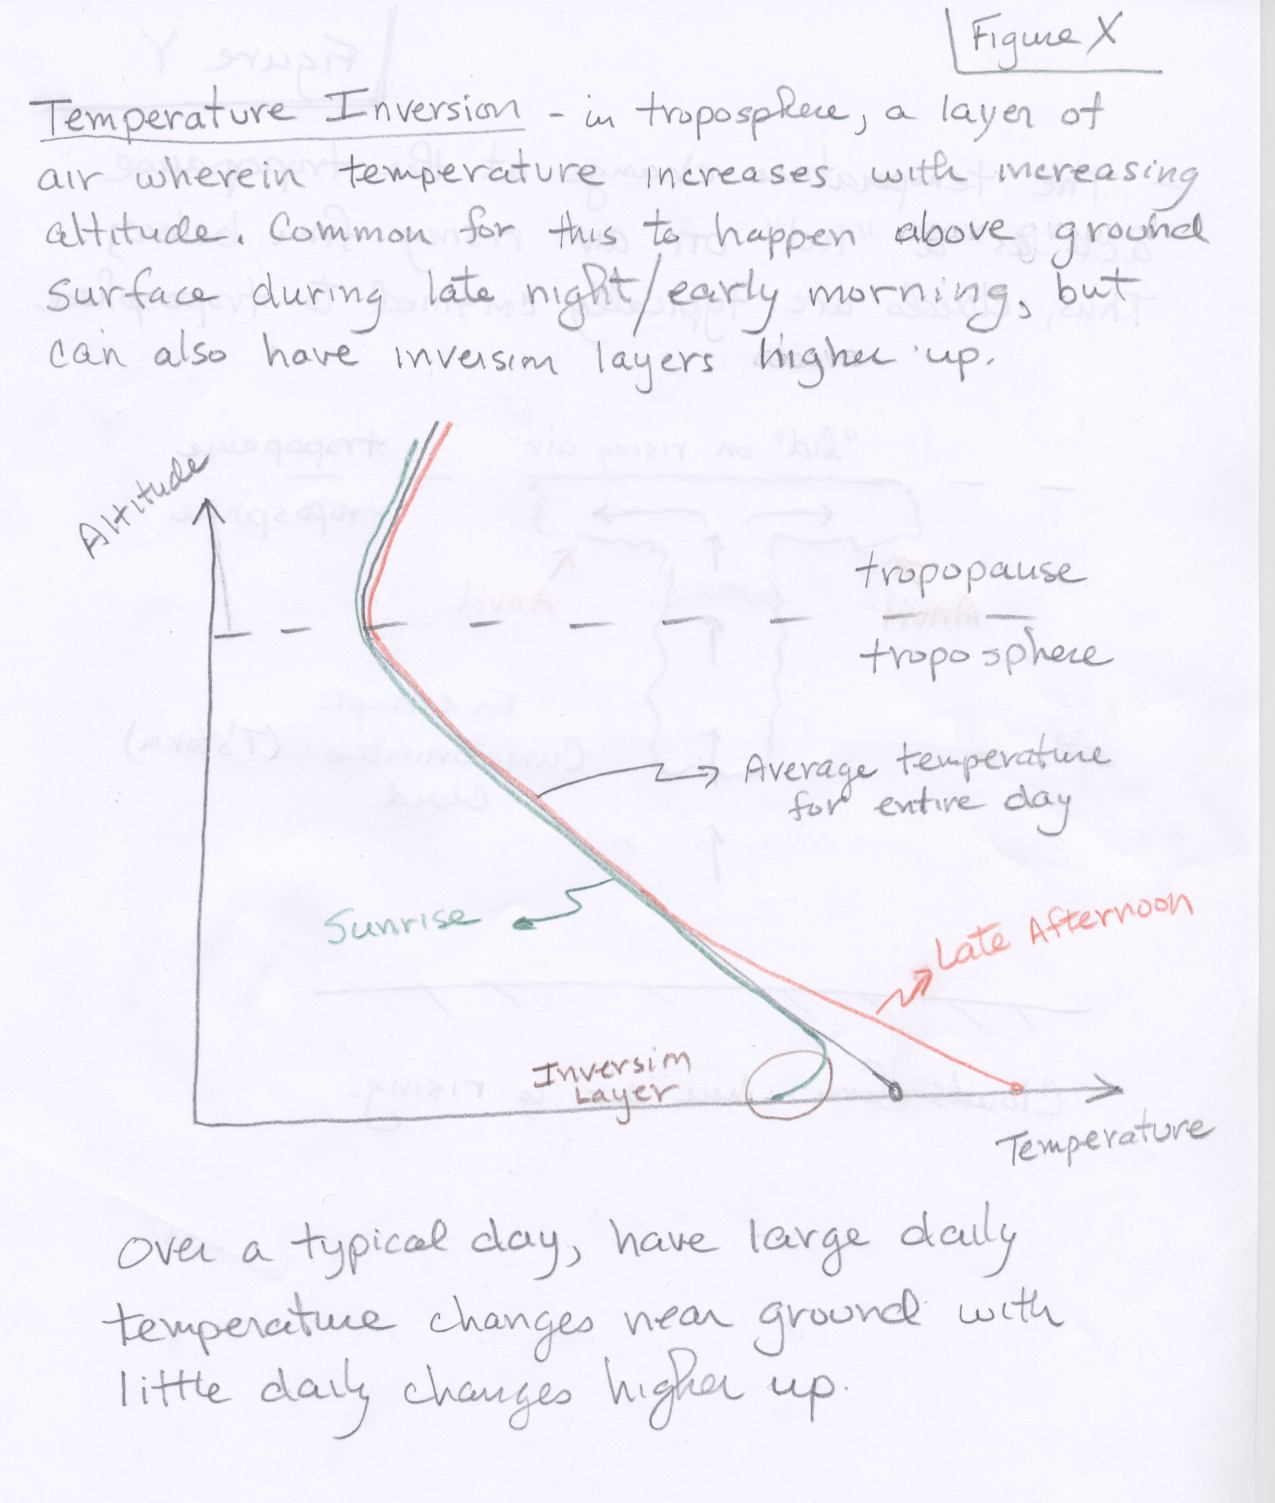 Figure X
Temperature Inversion - in troposphere, a layer of
air wherein temperature increases with increasing
altitude. Common for this to happen above ground
surface during late night/early morning, but
can also have inversion layers higher up.
Altitude
tropopause
troposphere
Average temperature
for entire day
Sunrise
Late Afternoon
Inversion
Layer
Temperature
Over a typical day, have large daily
temperature changes near ground with
little daily changes higher up.